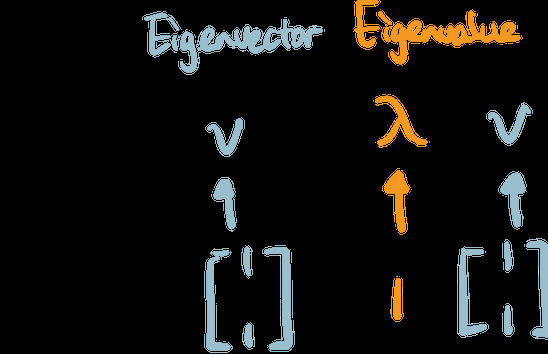 Eigenvector Eigenvalue
v λ v